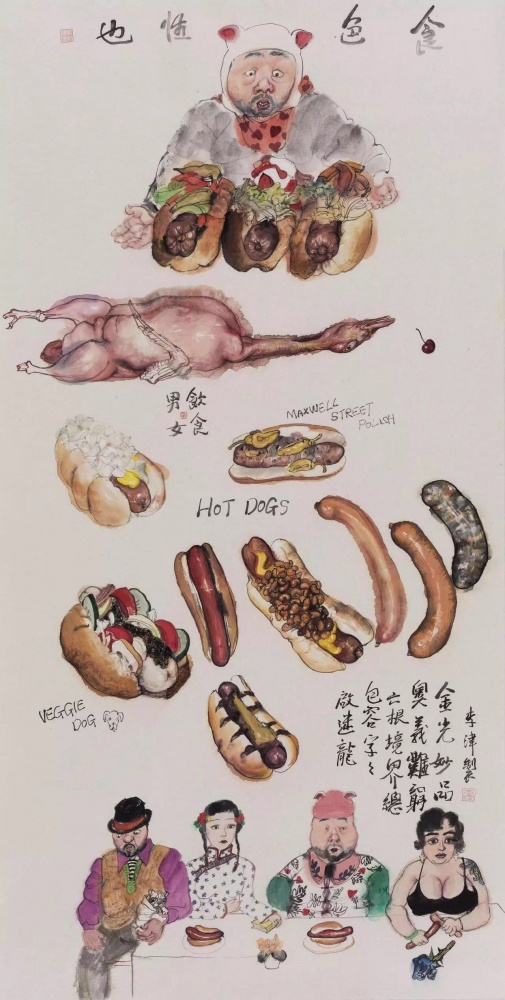 食色性也
飲食
男女
MAXWELL
STREET
POLISH
HOT DOGS
VEGGIE
DOG
李津製
金光妙品
奧義難窮
六根境界總
包容字々
啟迷龍